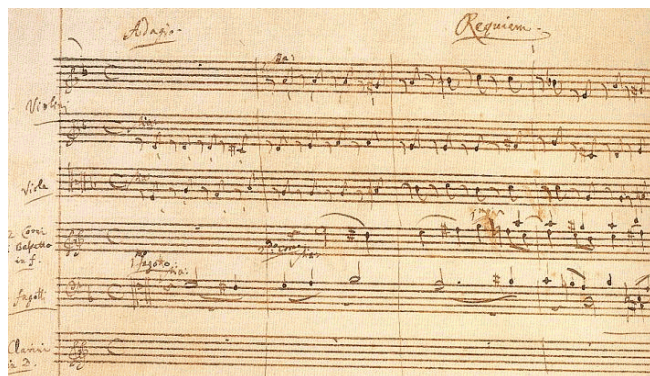 Adagio.
Requiem.
Violini
Viole
2 Corni
di Bassetto
in f.
fagotti
Primo
fagotto
Clarini
in D.